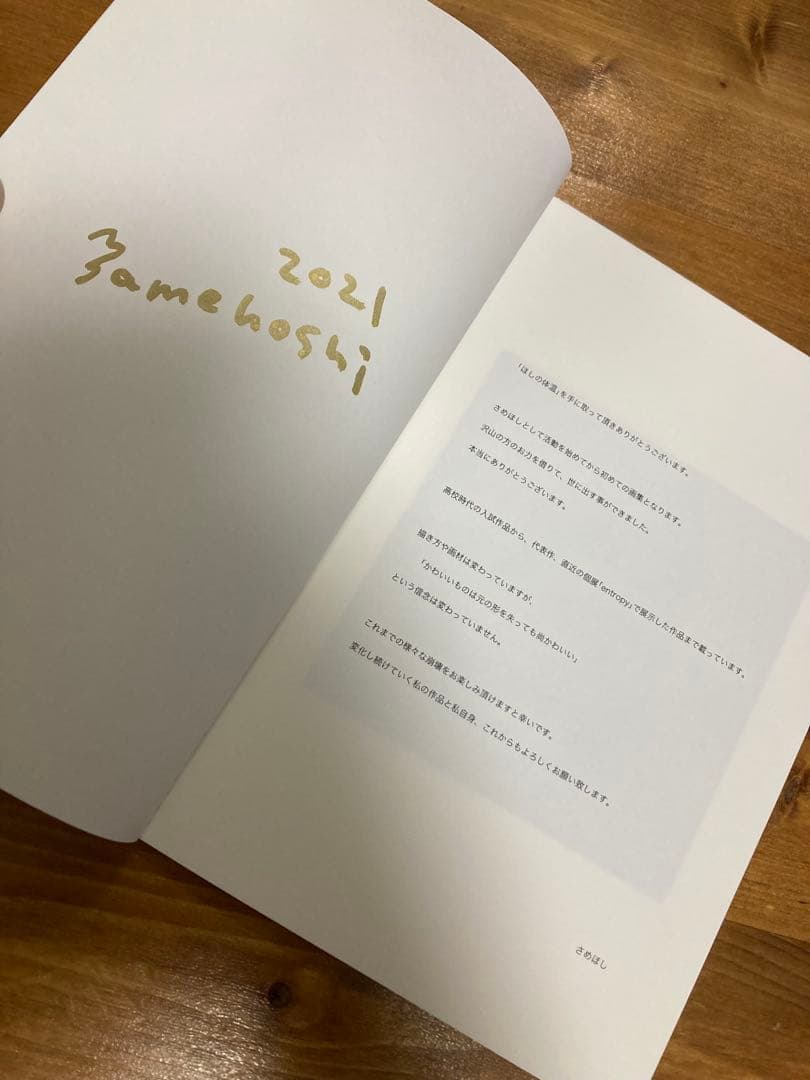 2021
Samehoshi
「ほしの体温」を手に取って頂きありがとうございます。
さめほしとして活動を始めてから初めての画集となります。
沢山の方のお力を借りて、世に出す事ができました。
本当にありがとうございます。
高校時代の入試作品から、代表作、直近の個展「entropy」で展示した作品まで載っています。
描き方や画材は変わっていますが、
「かわいいものは元の形を失っても尚かわいい」
という信念は変わっていません。
これまでの様々な崩壊をお楽しみ頂けますと幸いです。
変化し続けていく私の作品と私自身、これからもよろしくお願い致します。
さめほし